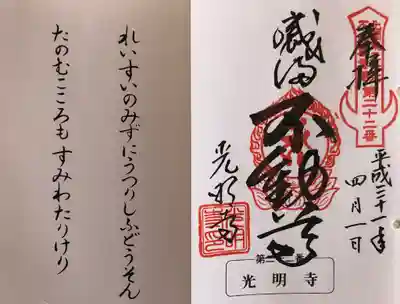 奉拝
第二十二番
平成三十一年
四月一日
不動尊
光明寺
光明寺
れいすいのみずにうつりしふどうそん
たのむこころもすみわたりけり